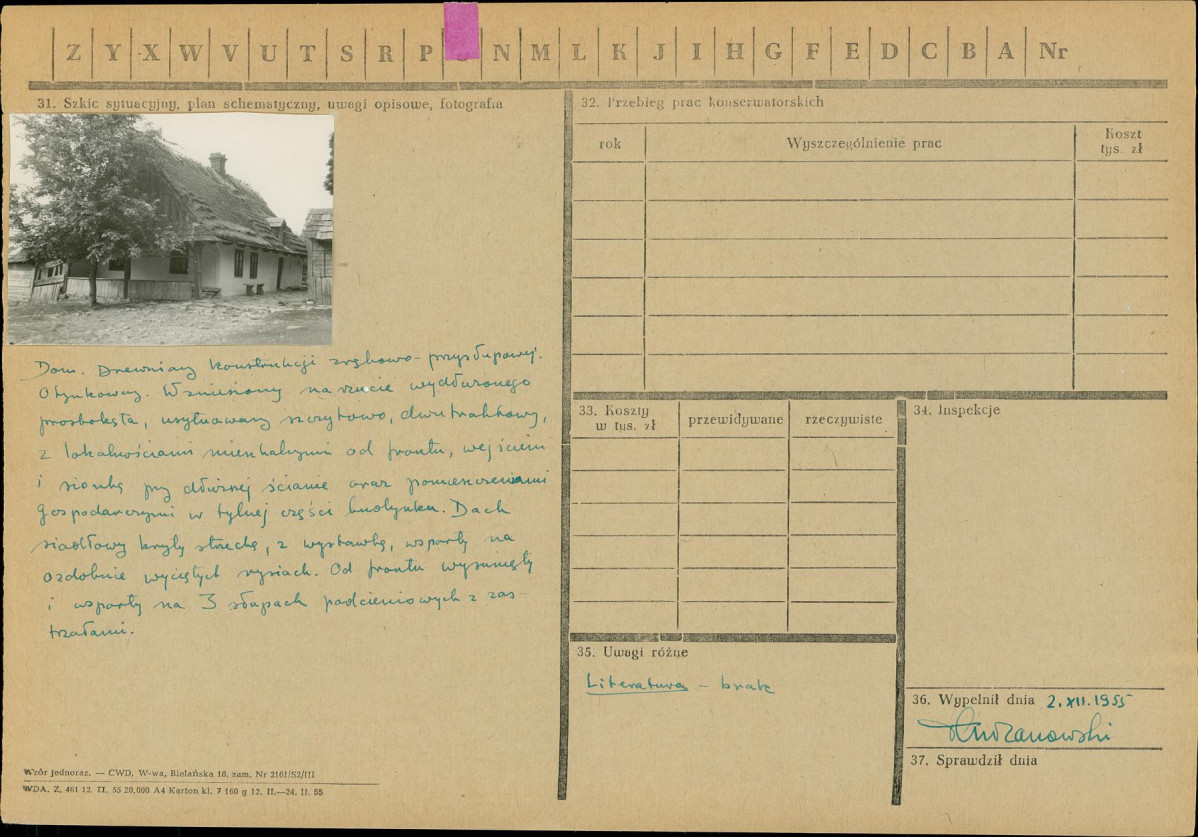 Z Y X W V U T S R P N M L K J I H G F E D C B A Nr
31. Szkic sytuacyjny, plan schematyczny, uwagi opisowe, fotografia
Dom. Drewniany konstrukcji zrębowo-przysłupowej.
Otynkowany. Wzniesiony na rzucie wydłużonego
prostokąta, usytuowany szczytowo, dwutraktowy,
z lokalnościami mieszkalnymi od frontu, wejściem
i sionką przy dłuższej ścianie oraz pomieszczeniami
gospodarczymi w tylnej części budynku. Dach
siodłowy kryty strzechą, z wystawką, wsparty na
ozdobnie wyciętych rysiach. Od frontu wysunięty
i wsparty na 3 słupach podcieniowych z zas-
trzałami.
Wzór jednoraz. — CWD, W-wa, Bielańska 18, zam. Nr 2161/S2/III
WDA. Z. 461 12. II. 55 20.000 A4 Karton kl. 7 160 g 12. II.—24. II. 55
32. Przebieg prac konserwatorskich
rok Wyszczególnienie prac Koszt
tys. zł
33. Koszty
w tys. zł
przewidywane rzeczywiste
34. Inspekcje
35. Uwagi różne
Literatura - brak
36. Wypełnił dnia 2.XII.1955
37. Sprawdził dnia